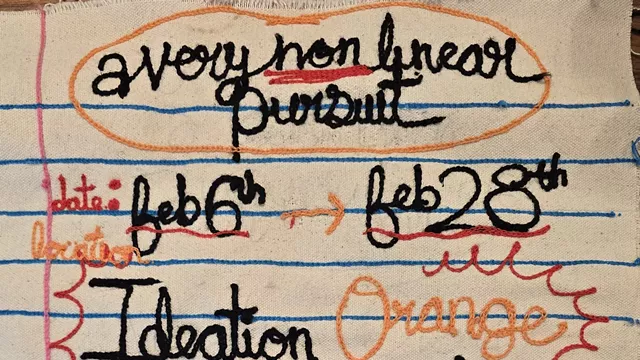 a very non linear
pursuit
date: feb 6th → feb 28th
location
Ideation Orange